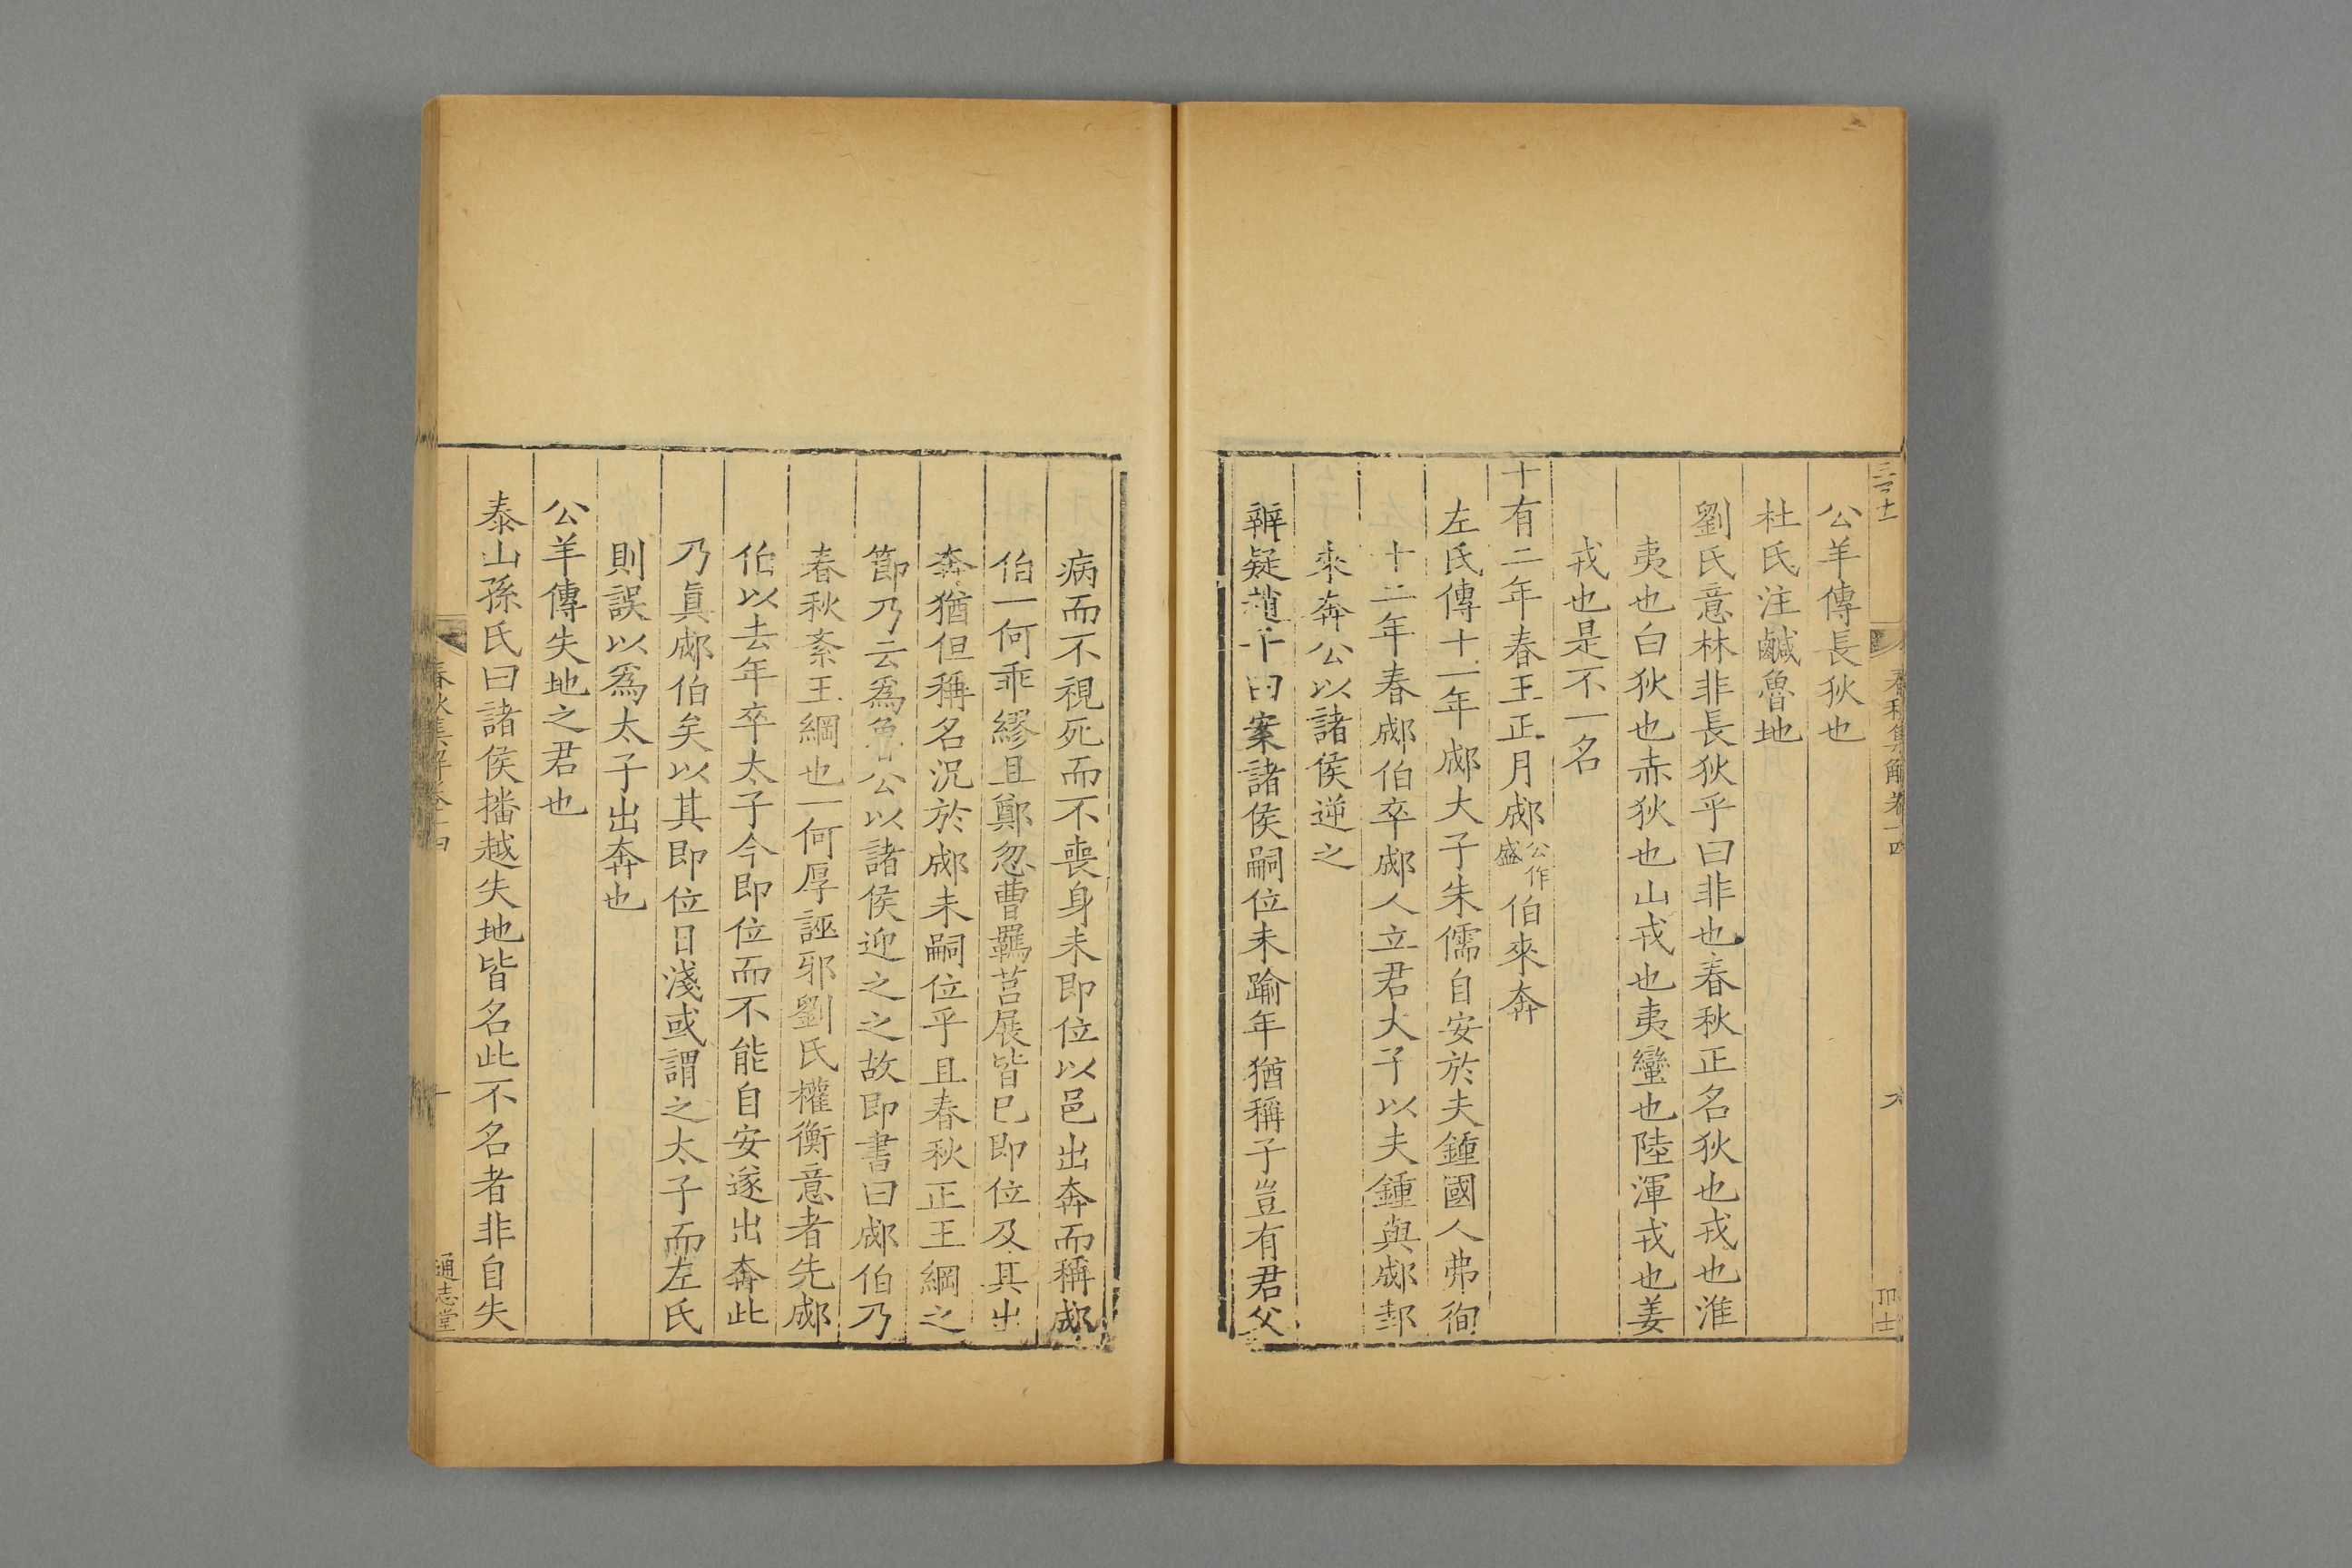 公羊傳長狄也
杜氏注鹹魯地
劉氏意林非長狄乎曰非也春秋正名狄也戎也淮
夷也白狄也赤狄也山戎也夷蠻也陸渾戎也姜
戎也是不一名
十有二年春王正月郕公作盛伯來奔
左氏傳十一年郕大子朱儒自安於夫鍾國人弗徇
十二年春郕伯卒郕人立君大子以夫鍾與郕邽
來奔公以諸侯逆之
辨疑趙子曰案諸侯嗣位未踰年猶稱子豈有君父
病而不視死而不喪身未即位以邑出奔而稱郕
伯一何乖繆且鄭忽曹羈莒展皆已即位及其出
奔猶但稱名況於郕未嗣位乎且春秋正王綱之
節乃云爲魯公以諸侯迎之之故即書曰郕伯乃
春秋紊王綱也一何厚誣邪劉氏權衡意者先郕
伯以去年卒太子今即位而不能自安遂出奔此
乃眞郕伯矣以其即位日淺或謂之太子而左氏
則誤以爲太子出奔也
公羊傳失地之君也
泰山孫氏曰諸侯播越失地皆名此不名者非自失
春秋集解卷十四
通志堂